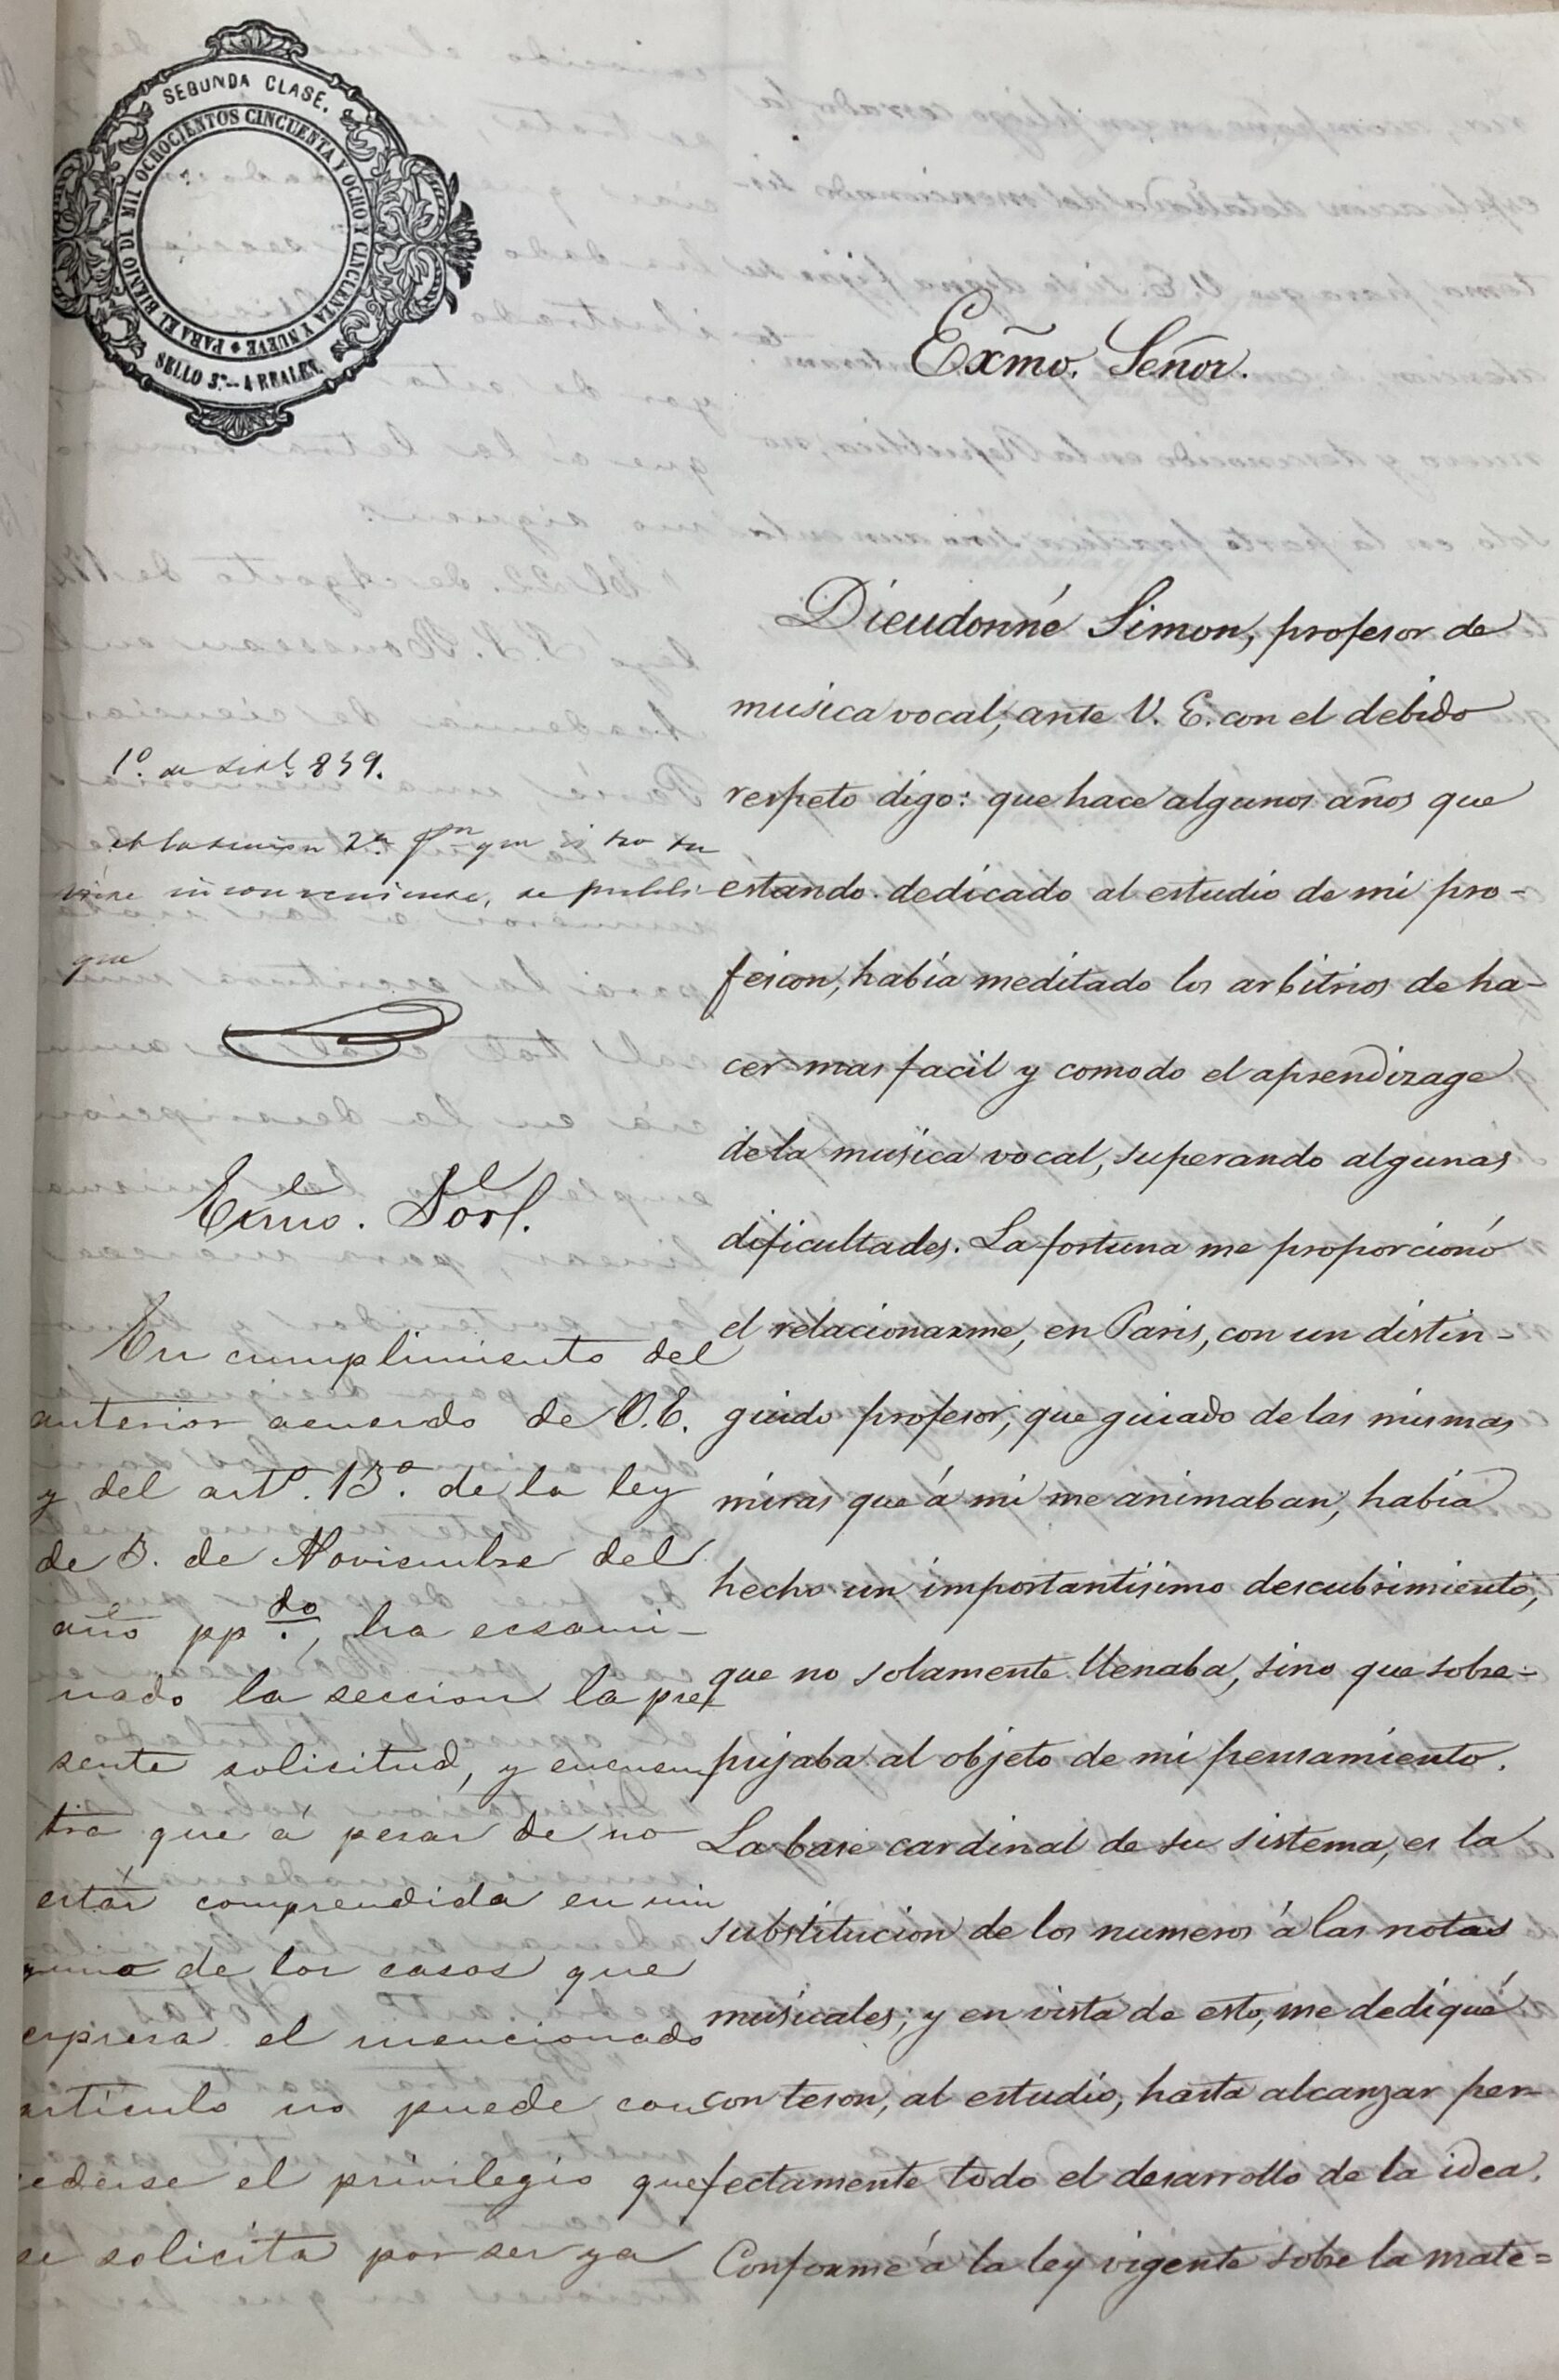 SEGUNDA CLASE.
PARA EL BIENIO DE MIL OCHOCIENTOS CINCUENTA Y OCHO Y CINCUENTA Y NUEVE
SELLO 3.º — 4 REALES.
Exm̃o. Señor.
Dieudonné Simon, profesor de
musica vocal, ante V. E. con el debido
respeto digo: que hace algunos años que
estando dedicado al estudio de mi pro-
fesion, habia meditado los arbitrios de ha-
cer mas facil y comodo el aprendizage
de la musica vocal, superando algunas
dificultades. La fortuna me proporcionó
el relacionarme, en Paris, con un distin-
guido profesor, que guiado de las mismas
miras que á mi me animaban, habia
hecho un importantisimo descubrimiento,
que no solamente llenaba, sino que sobre-
pujaba al objeto de mi pensamiento.
La base cardinal de su sistema, es la
substitucion de los numeros á las notas
musicales; y en vista de esto, me dediqué
con teson, al estudio, hasta alcanzar per-
fectamente todo el desarrollo de la idea.
Conforme á la ley vigente sobre la mate=
1º. de 859.
A la seccion 2ª. pª que si no tu
viere inconveniente, se publi
que
Exmo. Sor.
En cumplimiento del
anterior acuerdo de V. E.
y del artº. 13º. de la ley
de 3. de Noviembre del
año pp.do, ha ecsami-
nado la seccion la pre
sente solicitud, y encuen
tra que á pesar de no
estar comprendida en nin
guno de los casos que
expresa el mencionado
artículo no puede con
cederse el privilegio que
se solicita por ser ya